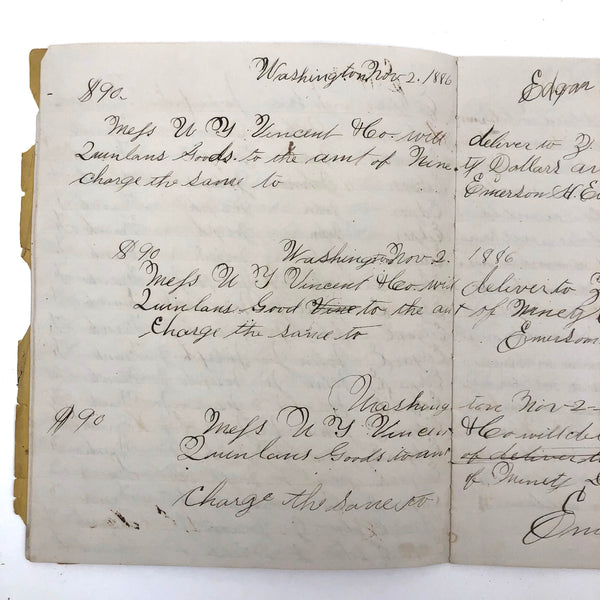 Washington Nov 2. 1886 Edgar
$90-
Mess U Y Vincent & Co will deliver to Z.
Quinlans Goods. to the amt of Ninety Dollars an
charge the same to Emerson H. E
$90 Washington Nov 2. 1886
Mess U Y Vincent & Co will deliver to Z
Quinlans Good Vine to the amt of Ninety
charge the same to Emerson
Washington Nov 2-
$90 Mess U Y Vincent & Co will deli
Quinlans Goods to amt of deliver t
of Ninety D
charge the same to Em